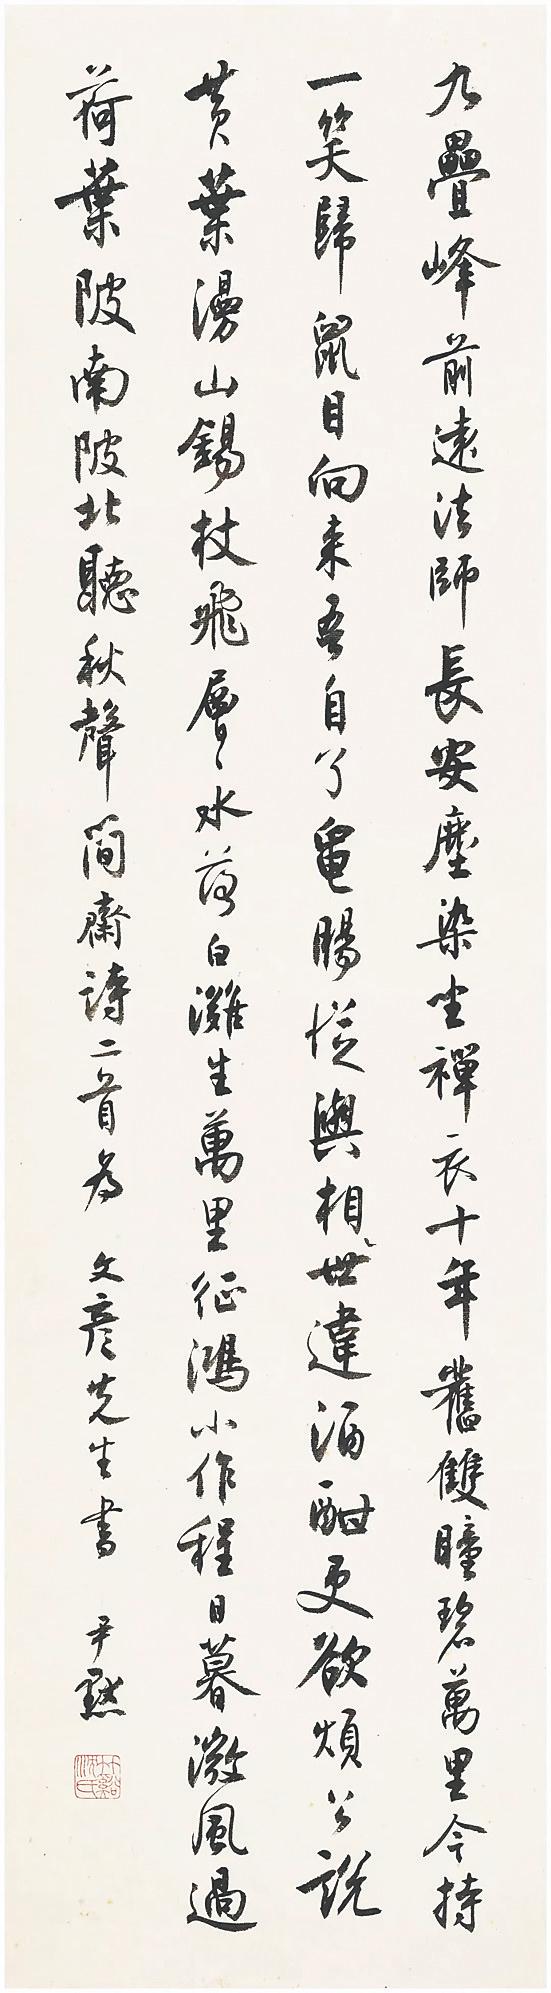 九疊峰前遠法師長安塵染坐禪衣十年舊雙瞳碧萬里今持
一笑歸鼠目向來吾自了龜腸從與相世違酒酣更欲煩公說
黃葉漫山錫杖飛層〻水落白灘生萬里征鴻小作程日暮微風過
荷葉陂南陂北聽秋聲簡齋詩二首為 文彥先生書 尹默
竹谿沈氏